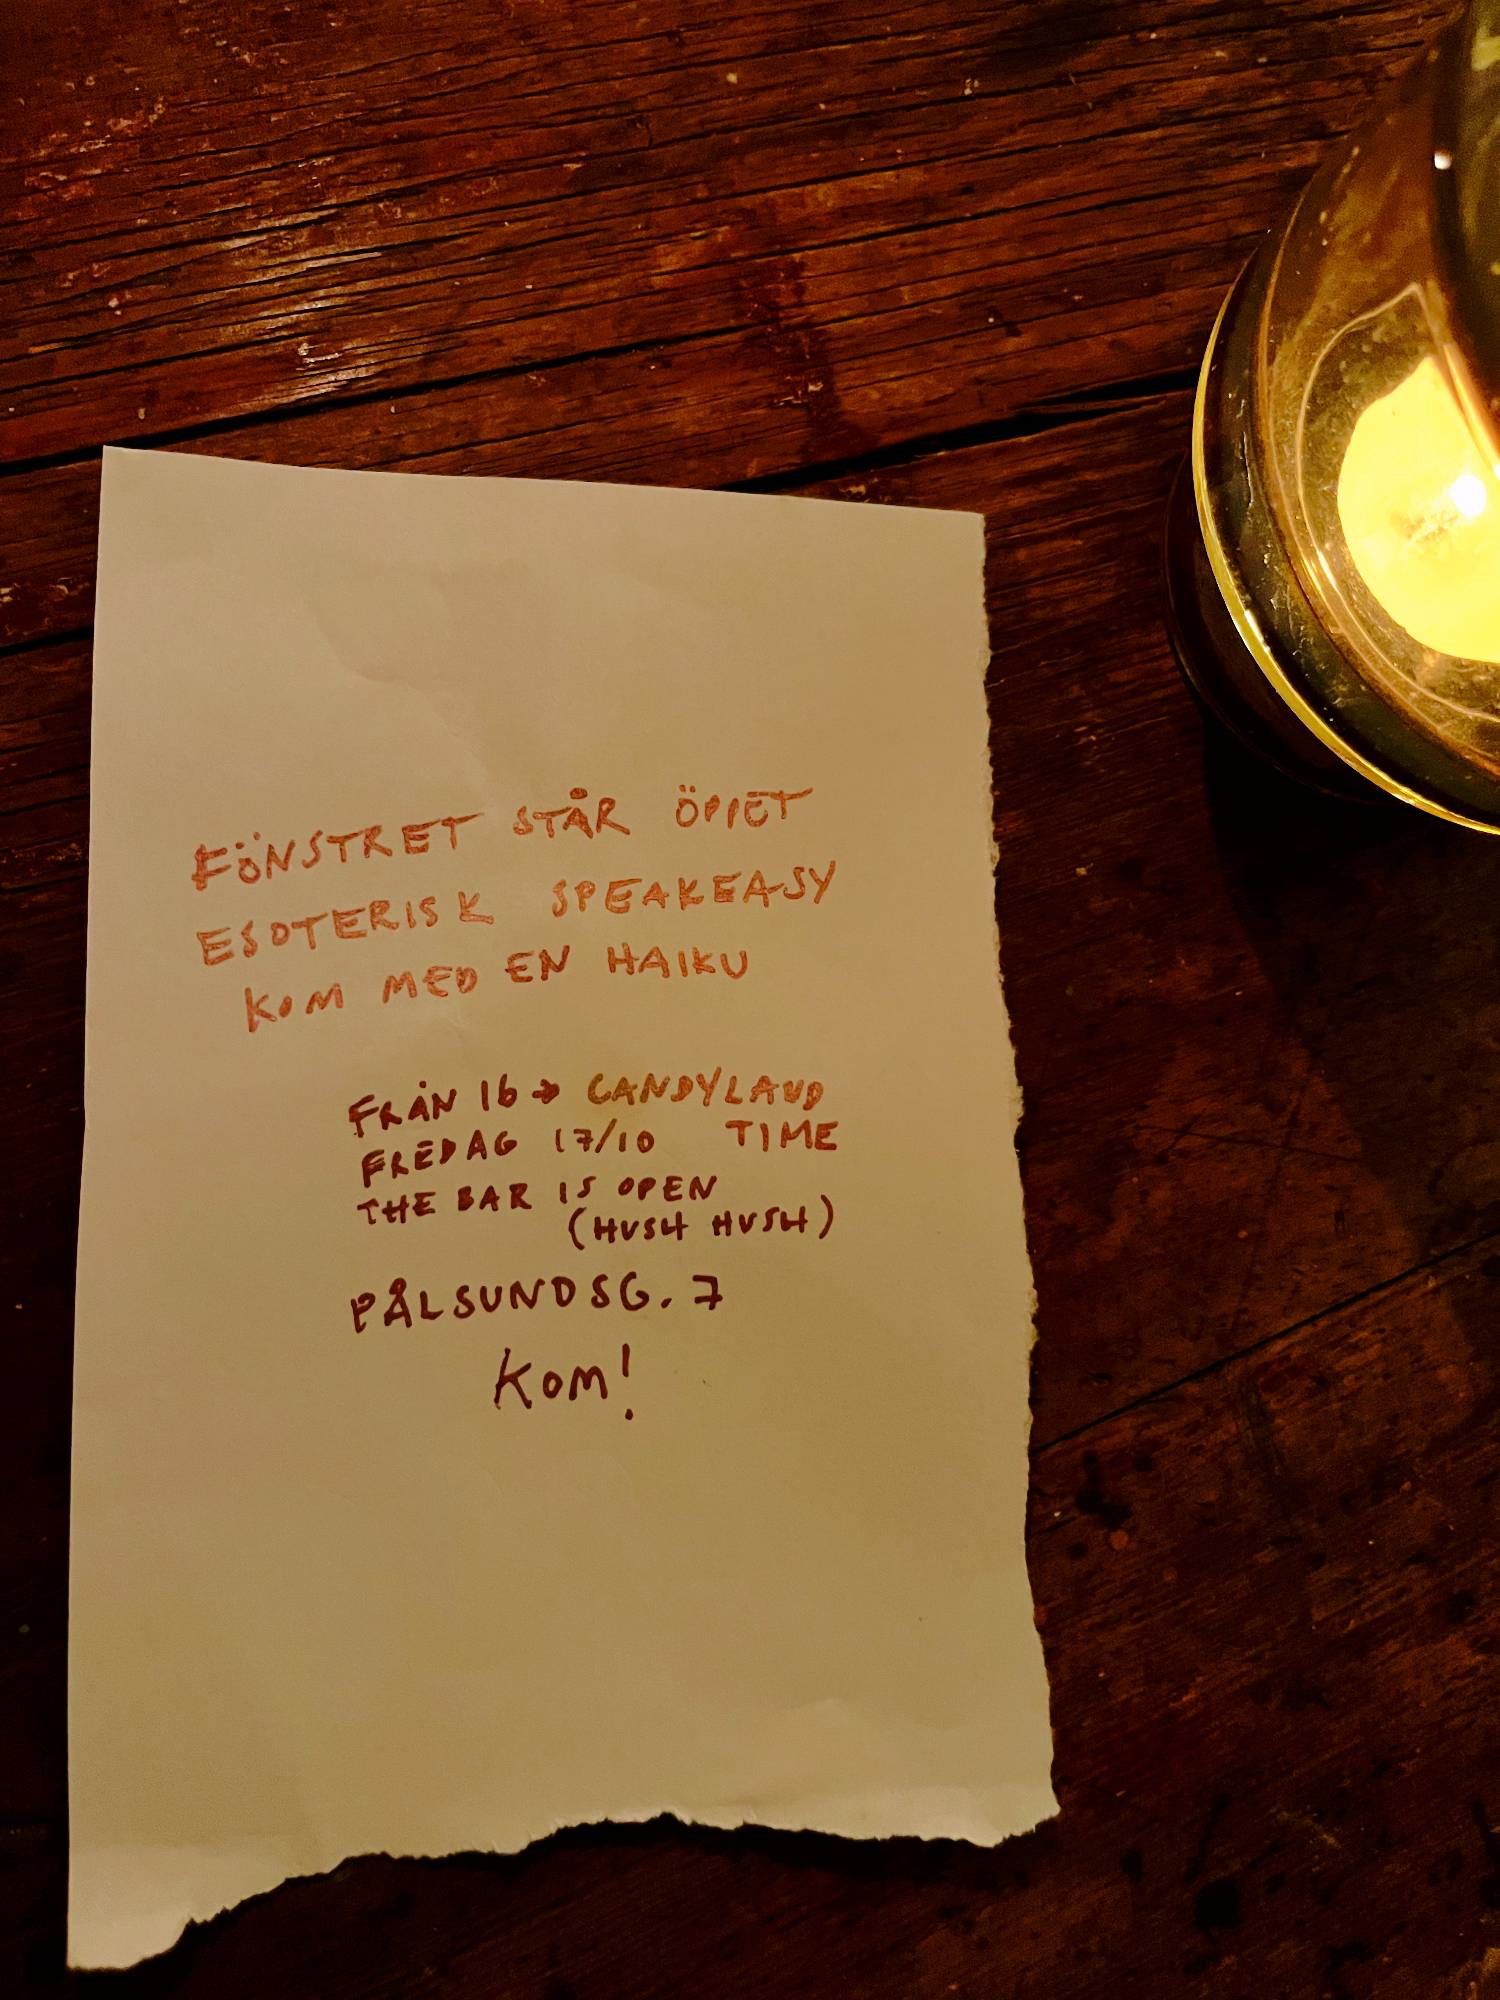 FÖNSTRET STÅR ÖPPET
ESOTERISK SPEAKEASY
KOM MED EN HAIKU
FRÅN 16 → CANDYLAND
FREDAG 17/10 TIME
THE BAR IS OPEN
(HUSH HUSH)
PÅLSUNDSG. 7
KOM!